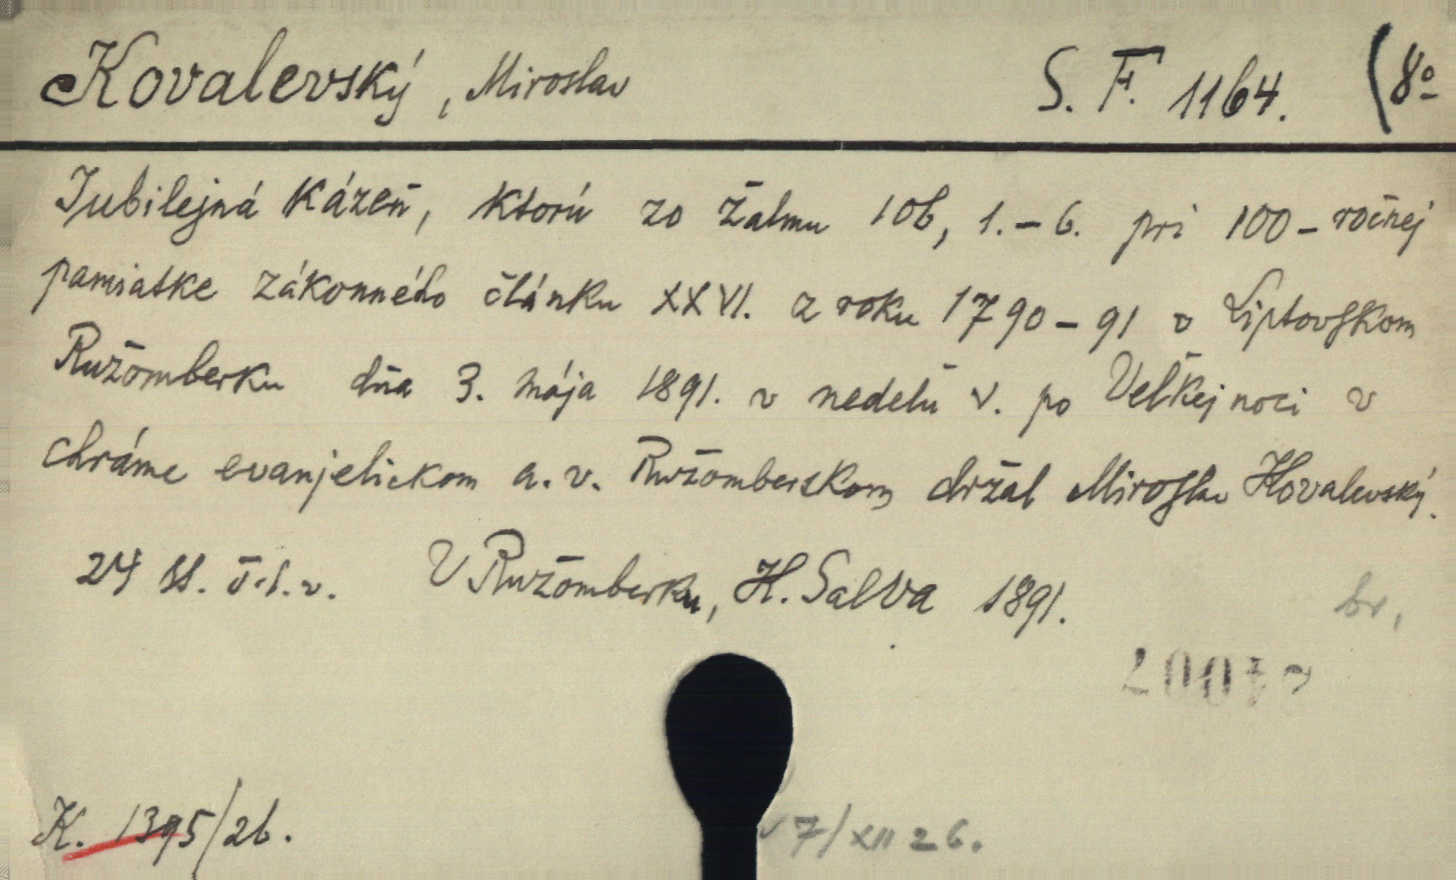 Kovalevský, Miroslav S. F. 1164. (8º
Jubilejná kázeň, ktorú zo žalmu 106, 1.-6. pri 100-ročnej
pamiatke zákonného článku XXVI. z roku 1790-91 v Liptovskom
Ružomberku dňa 3. mája 1891. v nedeľu V. po Veľkejnoci v
chráme evanjelickom a. v. Ružomberskom držal Miroslav Kovalevský.
24 st. V Ružomberku, K. Salva 1891.
br.
K. 1395/26.
7/XII 26.